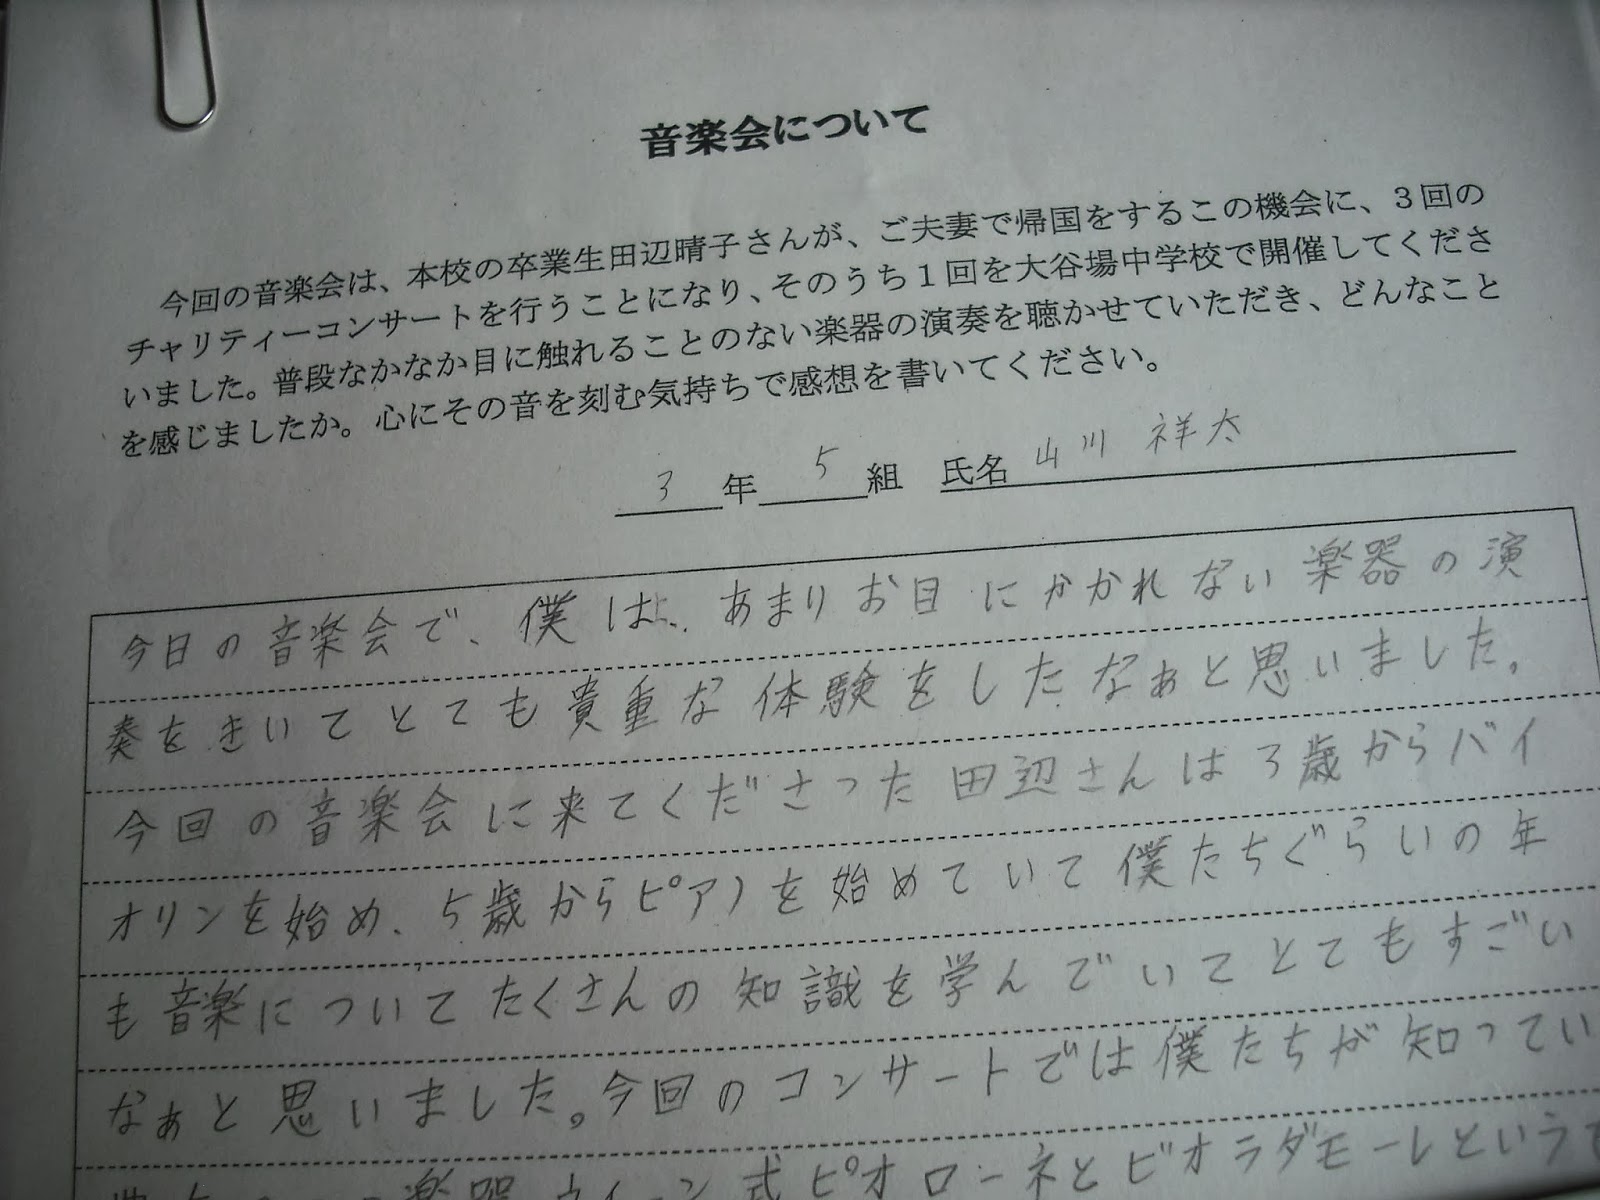 音楽会について
今回の音楽会は、本校の卒業生田辺晴子さんが、ご夫妻で帰国をするこの機会に、３回の
チャリティーコンサートを行うことになり、そのうち１回を大谷場中学校で開催してくださ
いました。普段なかなか目に触れることのない楽器の演奏を聴かせていただき、どんなこと
を感じましたか。心にその音を刻む気持ちで感想を書いてください。
3 年 5 組 氏名 山川 祥太
今日の音楽会で、僕は、あまりお目にかかれない楽器の演
奏をきいてとても貴重な体験をしたなぁと思いました。
今回の音楽会に来てくださった田辺さんは3歳からバイ
オリンを始め、5歳からピアノを始めていて僕たちぐらいの年
も音楽についてたくさんの知識を学んでいてとてもすごい
なぁと思いました。今回のコンサートでは僕たちが知ってい
楽器 ウィーン式ピオローネとビオラダモーレという